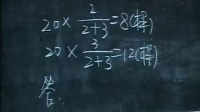 20×2/(2+3)=8(棵)
20×3/(2+3)=12(棵)
答: